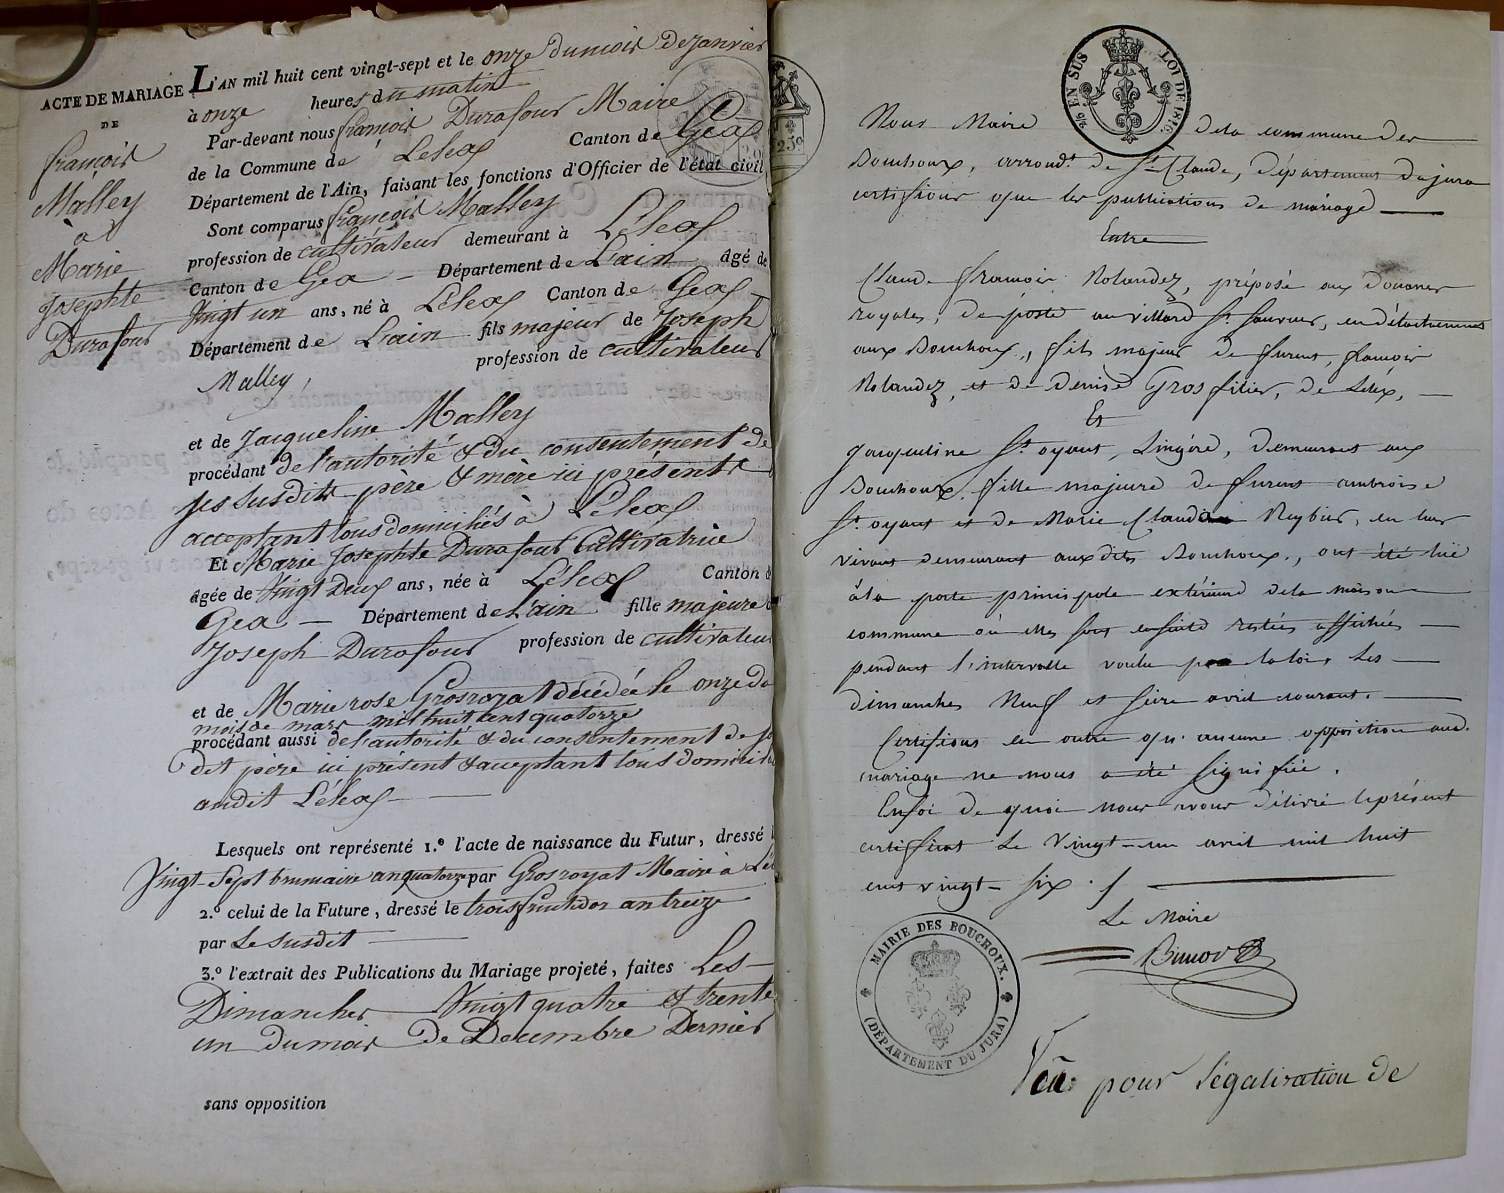 ACTE DE MARIAGE
DE
françois
Malley
à
Marie
Josephte
Durafour
L'AN mil huit cent vingt-sept et le onze du mois de Janvier
à onze heures du matin
Par-devant nous françois Durafour Maire
de la Commune de Lélex Canton de Gex
Département de l'Ain, faisant les fonctions d'Officier de l'état civil
Sont comparus françois Malley
profession de cultivateur demeurant à Lélex
Canton de Gex Département de L'ain âgé de
Vingt un ans, né à Lélex Canton de Gex
Département de L'ain fils majeur de Joseph
Malley, profession de cultivateur
et de Jacqueline Malley
procédant de l'autorité & du consentement de
ses susdits père & mère ici présents
acceptant tous domiciliés à Lélex
Et Marie Josephte Durafour Cultivatrice
âgée de Vingt Deux ans, née à Lélex Canton d
Gex Département de L'ain fille majeure
Joseph Durafour profession de cultivateur
et de Marie rose Grosroyat décédée le onze du
mois de mars mil huit cent quatorze
procédant aussi de l'autorité & du consentement de so
dit père ici présent & acceptant tous domicili
audit Lélex
Lesquels ont représenté 1.º l'acte de naissance du Futur, dressé
Vingt-Sept brumaire an quatorze par Grosroyat Maire à Lél
2.º celui de la Future, dressé le trois fructidor an treize
par Le susdit
3.º l'extrait des Publications du Mariage projeté, faites Les
Dimanches Vingt quatre & trente
un du mois de Decembre Dernier
sans opposition
2/6 EN SUS LOI DE 1816.
Nous Maire de la commune des
Bouchoux, arrondt. de St. Claude, Département du jura
certifions que les publications de mariage
Entre
Claude françois Rolandez, préposé aux Douanes
royales, de poste au villard St. Sauveur, en détachement
aux Bouchoux, fils majeur de furent françois
Rolandez, et de Denise Grosfilier, de Léléx,
Et
Jacqueline St. oyant, Lingère, demeurant aux
Bouchoux, fille majeure de furent ambroise
St. oyant et de Marie Claudine Reybier, en leur
vivant demeurant auxdits Bouchoux, ont été lue
à la porte principale extérieure de la maison
commune où elles sont ensuite restées affichées
pendant l'intervalle voulu par la loi, les
dimanches Neuf et seize avril courant.
Certifions en outre qu'aucune opposition aud.
mariage ne nous a été signifiée.
En foi de quoi nous avons délivré le présent
certificat le vingt-un avril mil huit
cent vingt-six ./.
Le Maire
MAIRIE DES BOUCHOUX.
(DÉPARTEMENT DU JURA)
Vu pour légalisation de